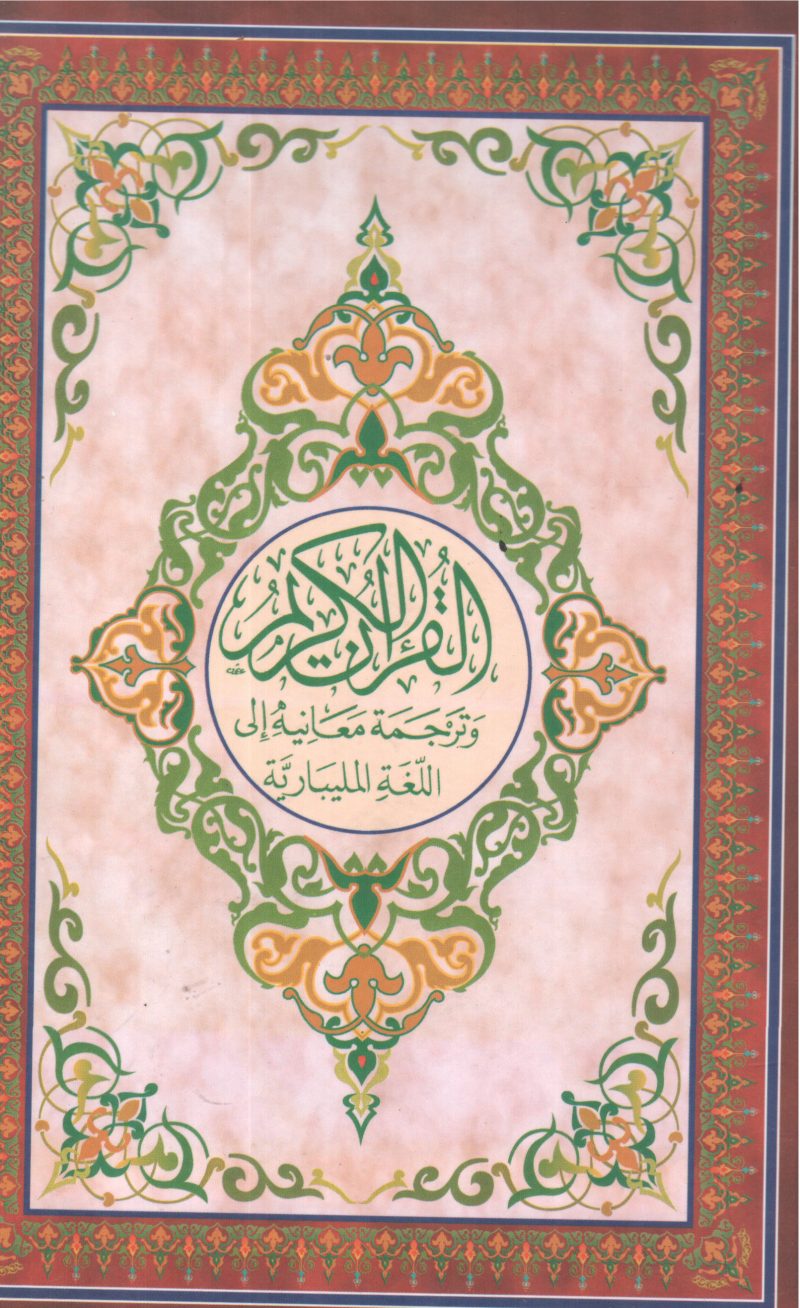 القرآن الكريم
وَتَرْجَمَة مَعَانِيهُ إِلى
اللّغَةِ المليبَاريَّة